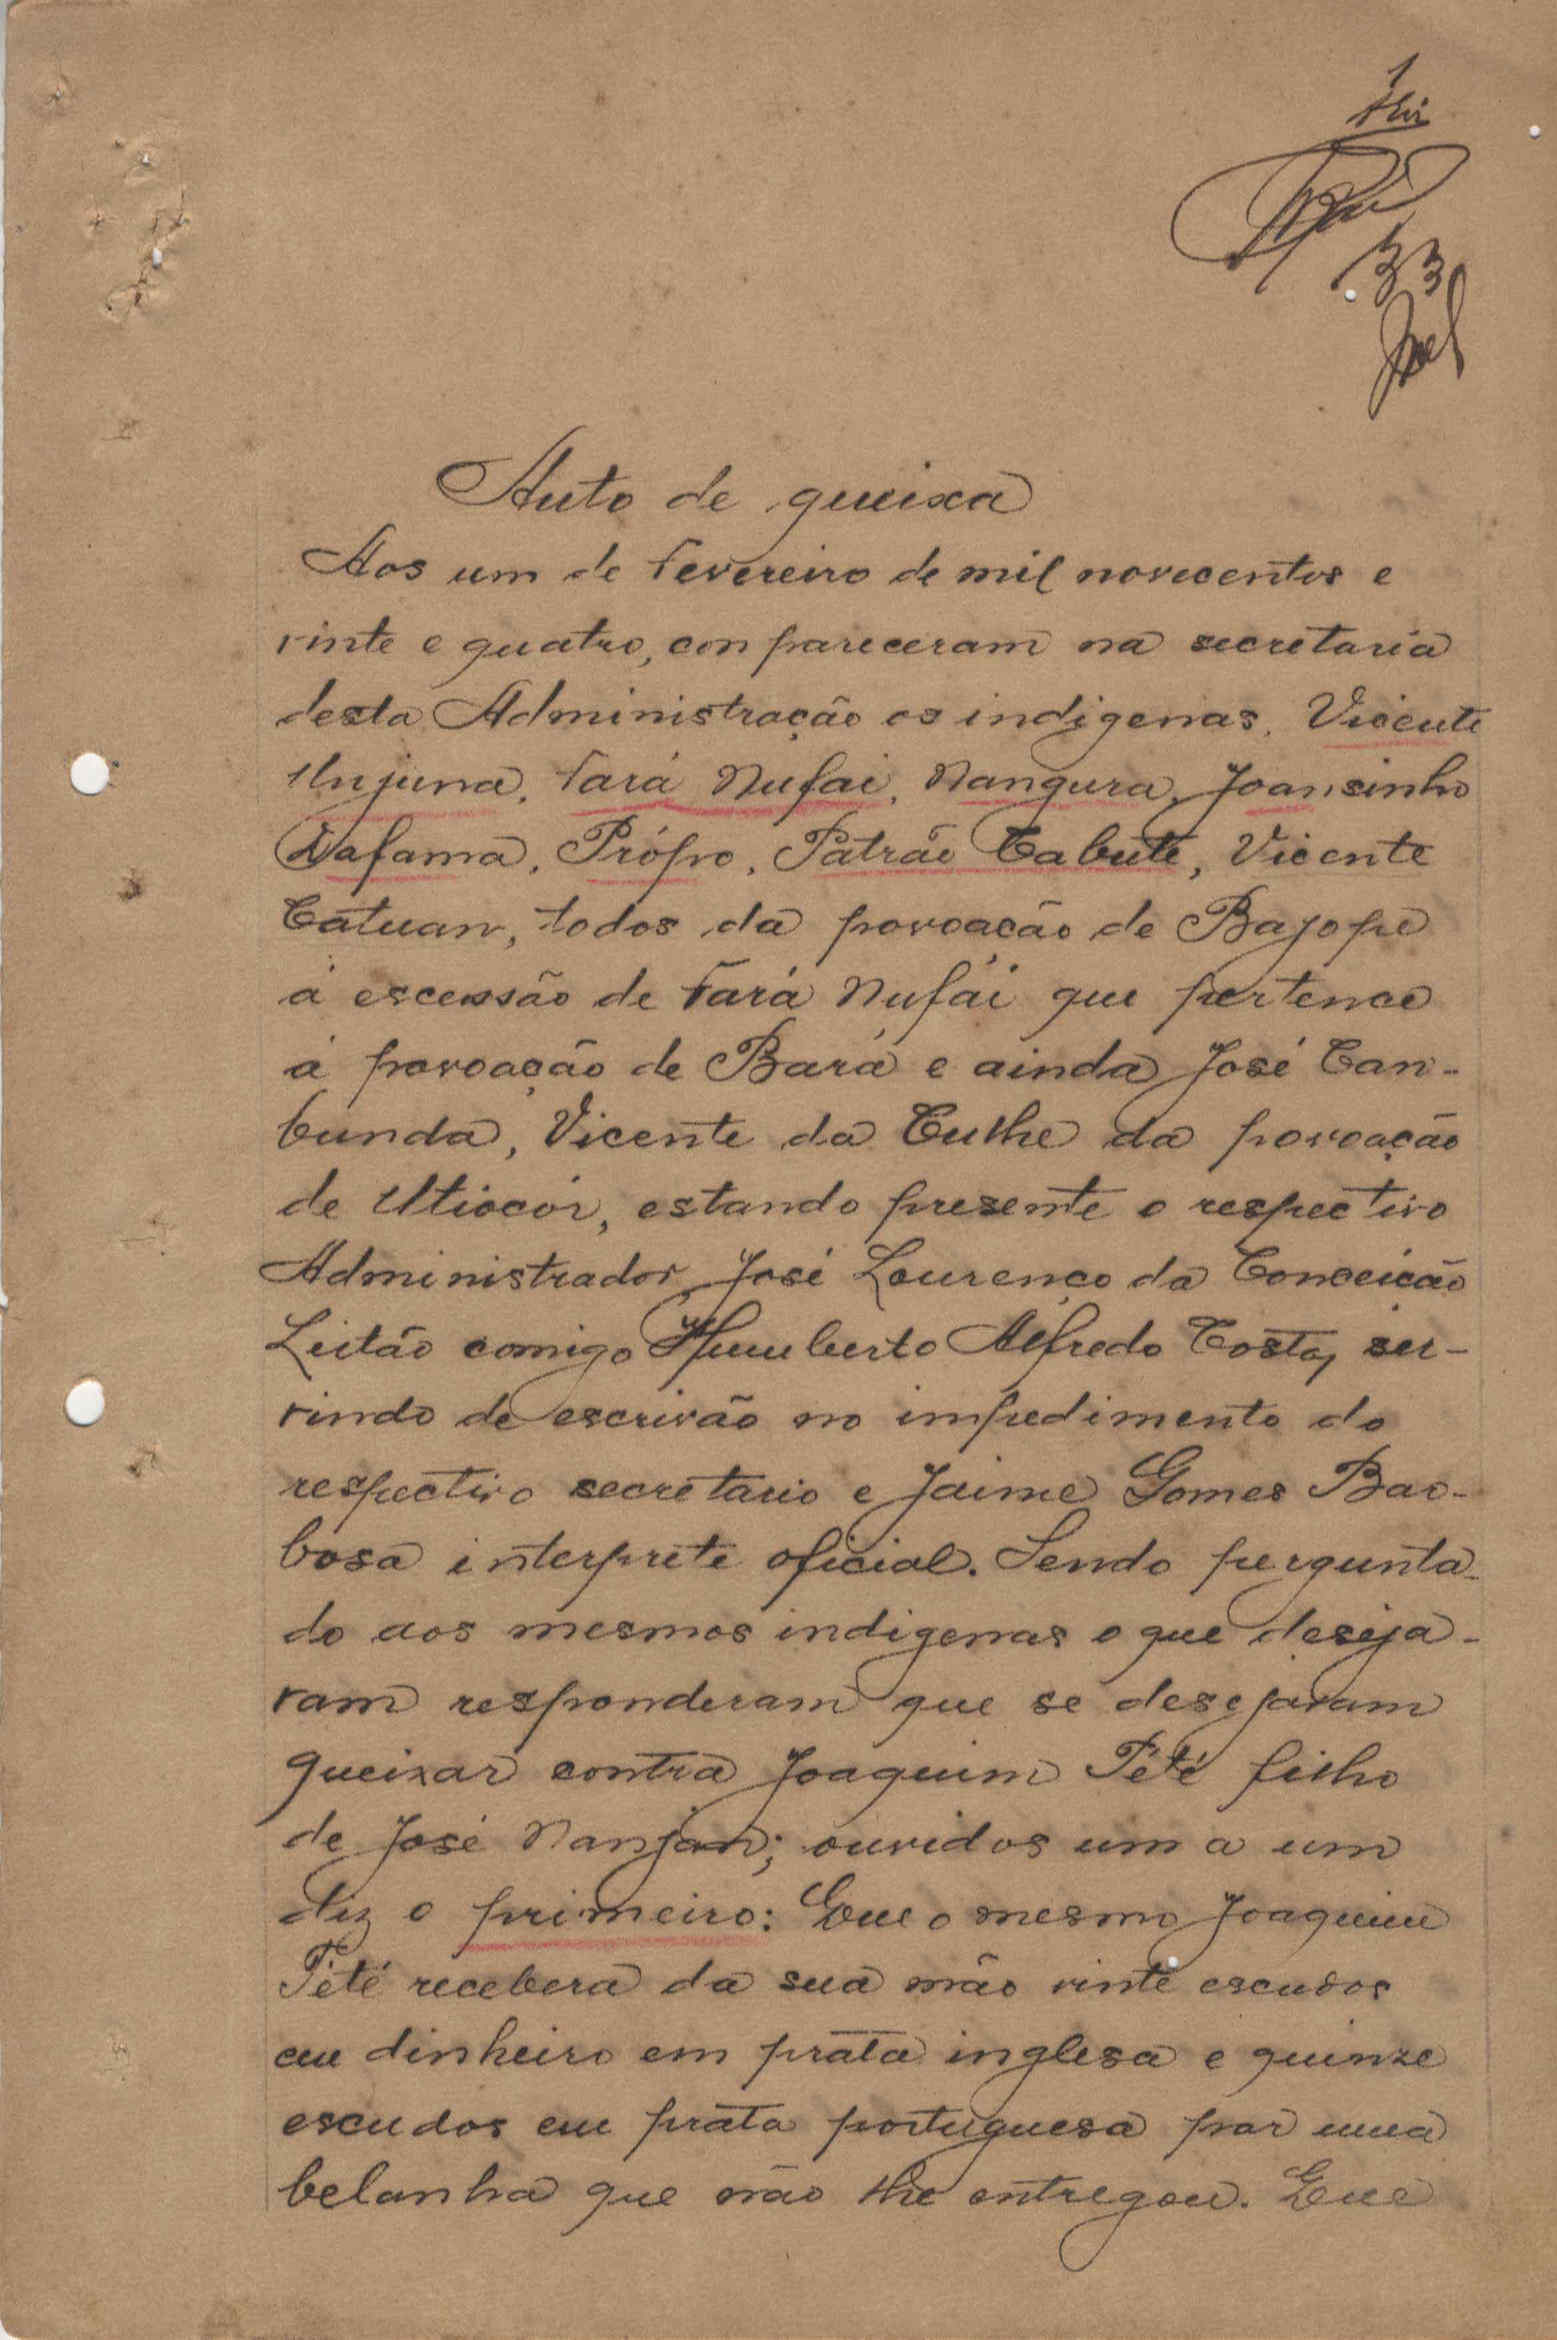 1
33
Auto de queixa
Aos um de Fevereiro de mil novecentos e
vinte e quatro, conpareceram na secretaria
desta Administração os indigenas, Vicente
Unjuna, Fará Nufai, Nangura, Joansinho
Dafama, Própro, Patrão Cabute, Vicente
Catuan, todos da povoacão de Bajope
á escessão de Fará Nufái que pertence
á povoação de Bará e ainda José Can-
bunda, Vicente da Culhe da povoação
de Utiacór, estando presente o respectivo
Administrador José Lourenço da Conceicão
Leitão comigo Humberto Alfredo Costa, ser-
vindo de escrivão no impedimento do
respectivo secretario e Jaime Gomes Bar-
bosa interprete oficial. Sendo pergunta-
do aos mesmos indigenas o que deseja-
vam responderam que se desejavam
queixar contra Joaquim Tété filho
de José Nanjan; ouvidos um a um
diz o primeiro: Que o mesmo Joaquim
Tété recebera da sua mão vinte escudos
em dinheiro em prata inglesa e quinze
escudos em prata portuguesa por uma
belanha que não lhe entregou. Que